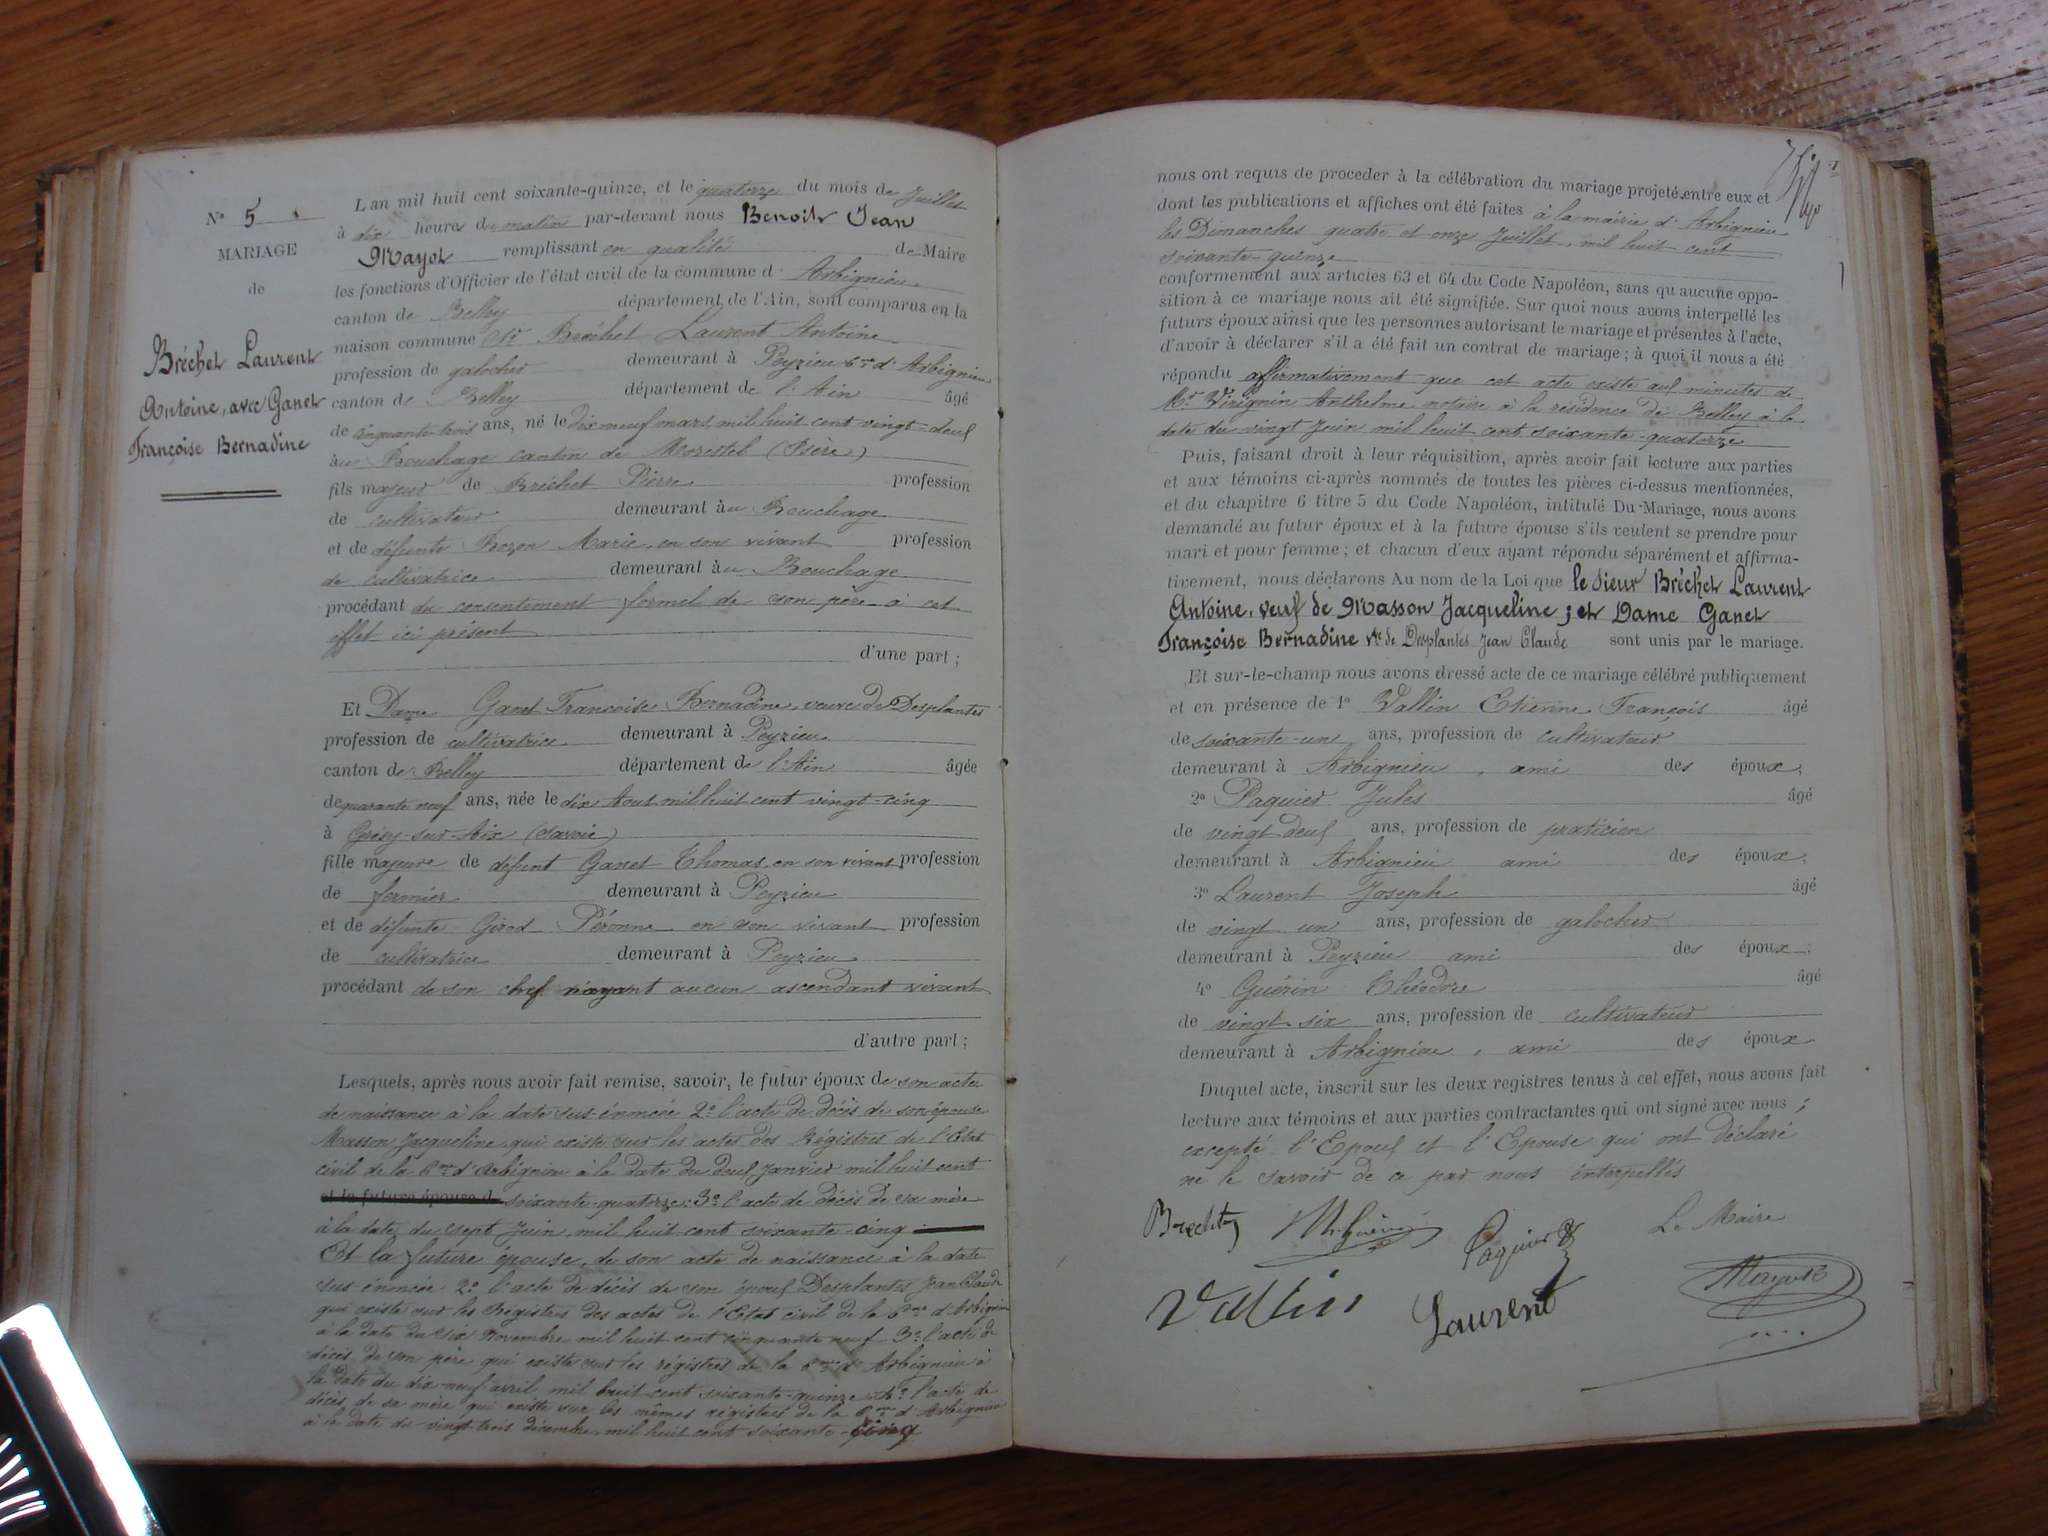 N° 5
MARIAGE
de
Bréchet Laurent
Antoine, avec Ganet
Françoise Bernadine
L an mil huit cent soixante-quinze, et le quatorze du mois de Juillet
à dix heures du matin par-devant nous Benoit Jean
Mayot remplissant en qualité de Maire
les fonctions d'Officier de l'état civil de la commune d' Arbignieu
canton de Belley département de l'Ain, sont comparus en la
maison commune Sr Bréchet Laurent Antoine
profession de galocher demeurant à Peyzieu Cne d'Arbignieu
canton de Belley département de l'Ain âgé
de cinquante trois ans, né le dix neuf mars mil huit cent vingt-deux
au Bouchage canton de Morestel (Isère)
fils majeur de Bréchet Pierre profession
de cultivateur demeurant au Bouchage
et de défunte Bozon Marie, en son vivant profession
de cultivatrice demeurant au Bouchage
procédant du consentement formel de son père à cet
effet ici présent
d'une part ;
Et Dame Ganet Françoise Bernadine, veuve de Desplantes
profession de cultivatrice demeurant à Peyzieu
canton de Belley département de l'Ain âgée
de quarante neuf ans, née le dix Aout mil huit cent vingt-cinq
à Grésy-sur-Aix (Savoie)
fille majeure de défunt Ganet Thomas en son vivant profession
de fermier demeurant à Peyzieu
et de défunte Girod Péronne en son vivant profession
de cultivatrice demeurant à Peyzieu
procédant de son chef n'ayant aucun ascendant vivant
d'autre part ;
Lesquels, après nous avoir fait remise, savoir, le futur époux de son acte
de naissance à la date sus-énoncée 2° l'acte de décès de son épouse
Masson Jacqueline, qui existe sur les actes des Régistres de l'Etat
civil de la Cne d'Arbignieu à la date du deux Janvier mil huit cent
et la future épouse d soixante-quatorze. 3° l'acte de décès de sa mère
à la date du sept Juin mil huit cent soixante-cinq
Et la future épouse, de son acte de naissance à la date
sus-énoncée 2° l'acte de décès de son époux Desplantes Jean Claude
qui existe sur les Régistres des actes de l'Etat civil de la Cne d'Arbignieu
à la date du six Novembre mil huit cent cinquante neuf 3° l'acte de
décès de son père qui existe sur les régistres de la Cne d'Arbignieu à
la date du dix-neuf avril mil huit cent soixante-quinze 4° l'acte de
décès de sa mère qui existe sur les mêmes régistres de la Cne d'Arbignieu
à la date du vingt-trois décembre mil huit cent soixante-cinq
nous ont requis de proceder à la célébration du mariage projeté entre eux et
dont les publications et affiches ont été faites à la mairie d'Arbignieu
les Dimanches quatre et onze Juillet, mil huit cent
soixante-quinze
conformement aux articles 63 et 64 du Code Napoléon, sans qu'aucune oppo-
sition à ce mariage nous ait été signifiée. Sur quoi nous avons interpellé les
futurs époux ainsi que les personnes autorisant le mariage et présentes à l'acte,
d'avoir à déclarer s'il a été fait un contrat de mariage ; à quoi il nous a été
répondu affirmativement que cet acte existe aux minutes de
Mr Virignin Anthelme notaire à la résidence de Belley à la
date du vingt Juin mil huit cent soixante-quatorze
Puis, faisant droit à leur réquisition, après avoir fait lecture aux parties
et aux témoins ci-après nommés de toutes les pièces ci-dessus mentionnées,
et du chapitre 6 titre 5 du Code Napoléon, intitulé Du Mariage, nous avons
demandé au futur époux et à la future épouse s'ils veulent se prendre pour
mari et pour femme ; et chacun d'eux ayant répondu séparément et affirma-
tivement, nous déclarons Au nom de la Loi que le sieur Bréchet Laurent
Antoine, veuf de Masson Jacqueline ; et Dame Ganet
Françoise Bernadine Vve de Desplantes Jean Claude sont unis par le mariage.
Et sur-le-champ nous avons dressé acte de ce mariage célébré publiquement
et en présence de 1° Vallin Etienne François âgé
de soixante-un ans, profession de cultivateur
demeurant à Arbignieu, ami des époux;
2° Paquier Jules âgé
de vingt deux ans, profession de praticien
demeurant à Arbignieu ami des époux;
3° Laurent Joseph âgé
de vingt un ans, profession de galocher
demeurant à Peyzieu ami des époux;
4° Guérin Théodore âgé
de vingt-six ans, profession de cultivateur
demeurant à Arbignieu, ami des époux
Duquel acte, inscrit sur les deux registres tenus à cet effet, nous avons fait
lecture aux témoins et aux parties contractantes qui ont signé avec nous ;
excepté l'Epoux et l'Epouse qui ont déclaré
ne le savoir de ce par nous interpellés
Brechet Guérin Paquier Le Maire
Vallin Laurent Mayot